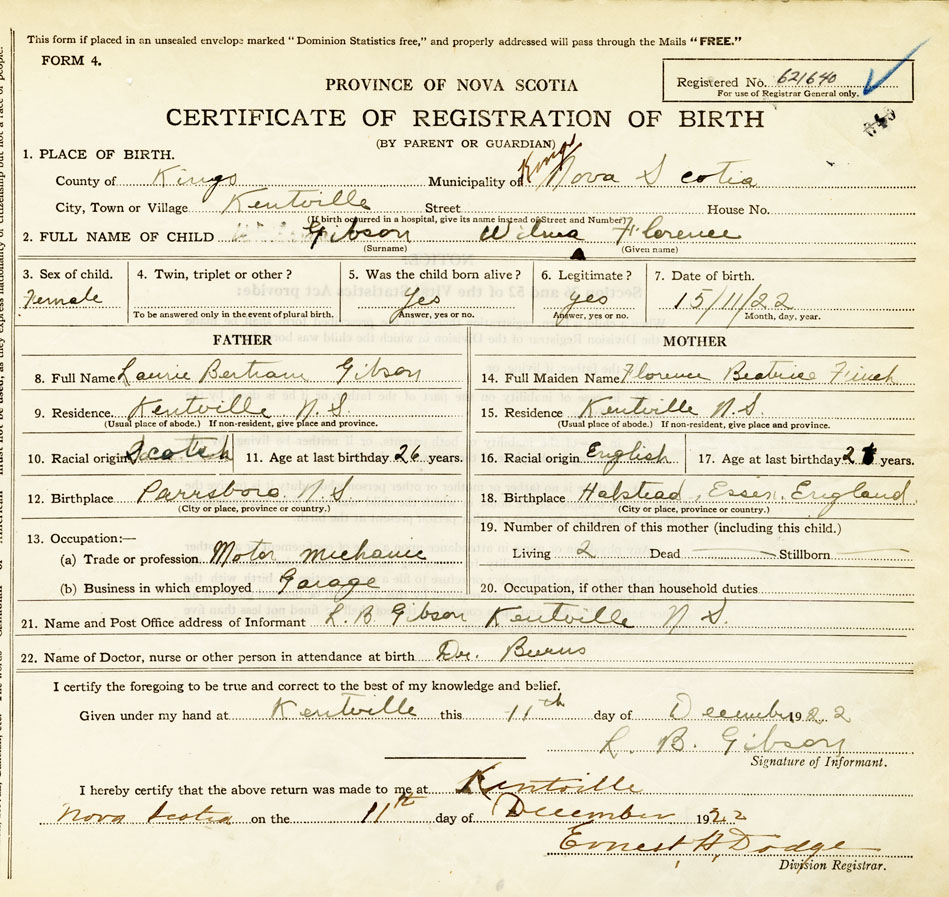 This form if placed in an unsealed envelope marked "Dominion Statistics free," and properly addressed will pass through the Mails "FREE."
FORM 4.
Registered No. 621640
For use of Registrar General only.
PROVINCE OF NOVA SCOTIA
CERTIFICATE OF REGISTRATION OF BIRTH
(BY PARENT OR GUARDIAN)
1. PLACE OF BIRTH.
County of Kings Municipality of Kings Nova Scotia
City, Town or Village Kentville Street House No.
(If birth occurred in a hospital, give its name instead of Street and Number)
2. FULL NAME OF CHILD Gibson Wilma Florence
(Surname) (Given name)
3. Sex of child. 4. Twin, triplet or other? 5. Was the child born alive? 6. Legitimate? 7. Date of birth.
Female Yes yes 15/11/22
To be answered only in the event of plural birth. Answer, yes or no. Answer, yes or no. Month, day, year.
FATHER
8. Full Name Laurie Bertram Gibson
9. Residence. Kentville N.S.
(Usual place of abode.) If non-resident, give place and province.
10. Racial origin Scotch 11. Age at last birthday 26 years.
12. Birthplace Parrsboro. N.S.
(City or place, province or country.)
13. Occupation:—
(a) Trade or profession Motor mechanic
(b) Business in which employed Garage
MOTHER
14. Full Maiden Name Florence Beatrice Finch
15. Residence Kentville N.S.
(Usual place of abode.) If non-resident, give place and province.
16. Racial origin English 17. Age at last birthday years.
18. Birthplace Halstead, Essex. England
(City or place, province or country.)
19. Number of children of this mother (including this child.)
Living 2 Dead — Stillborn —
20. Occupation, if other than household duties
21. Name and Post Office address of Informant L. B. Gibson Kentville N S.
22. Name of Doctor, nurse or other person in attendance at birth Dr. Burns
I certify the foregoing to be true and correct to the best of my knowledge and belief.
Given under my hand at Kentville this 11th day of December 1922
L. B. Gibson
Signature of Informant.
I hereby certify that the above return was made to me at Kentville
Nova Scotia on the 11th day of December 1922
Ernest H. Dodge
Division Registrar.